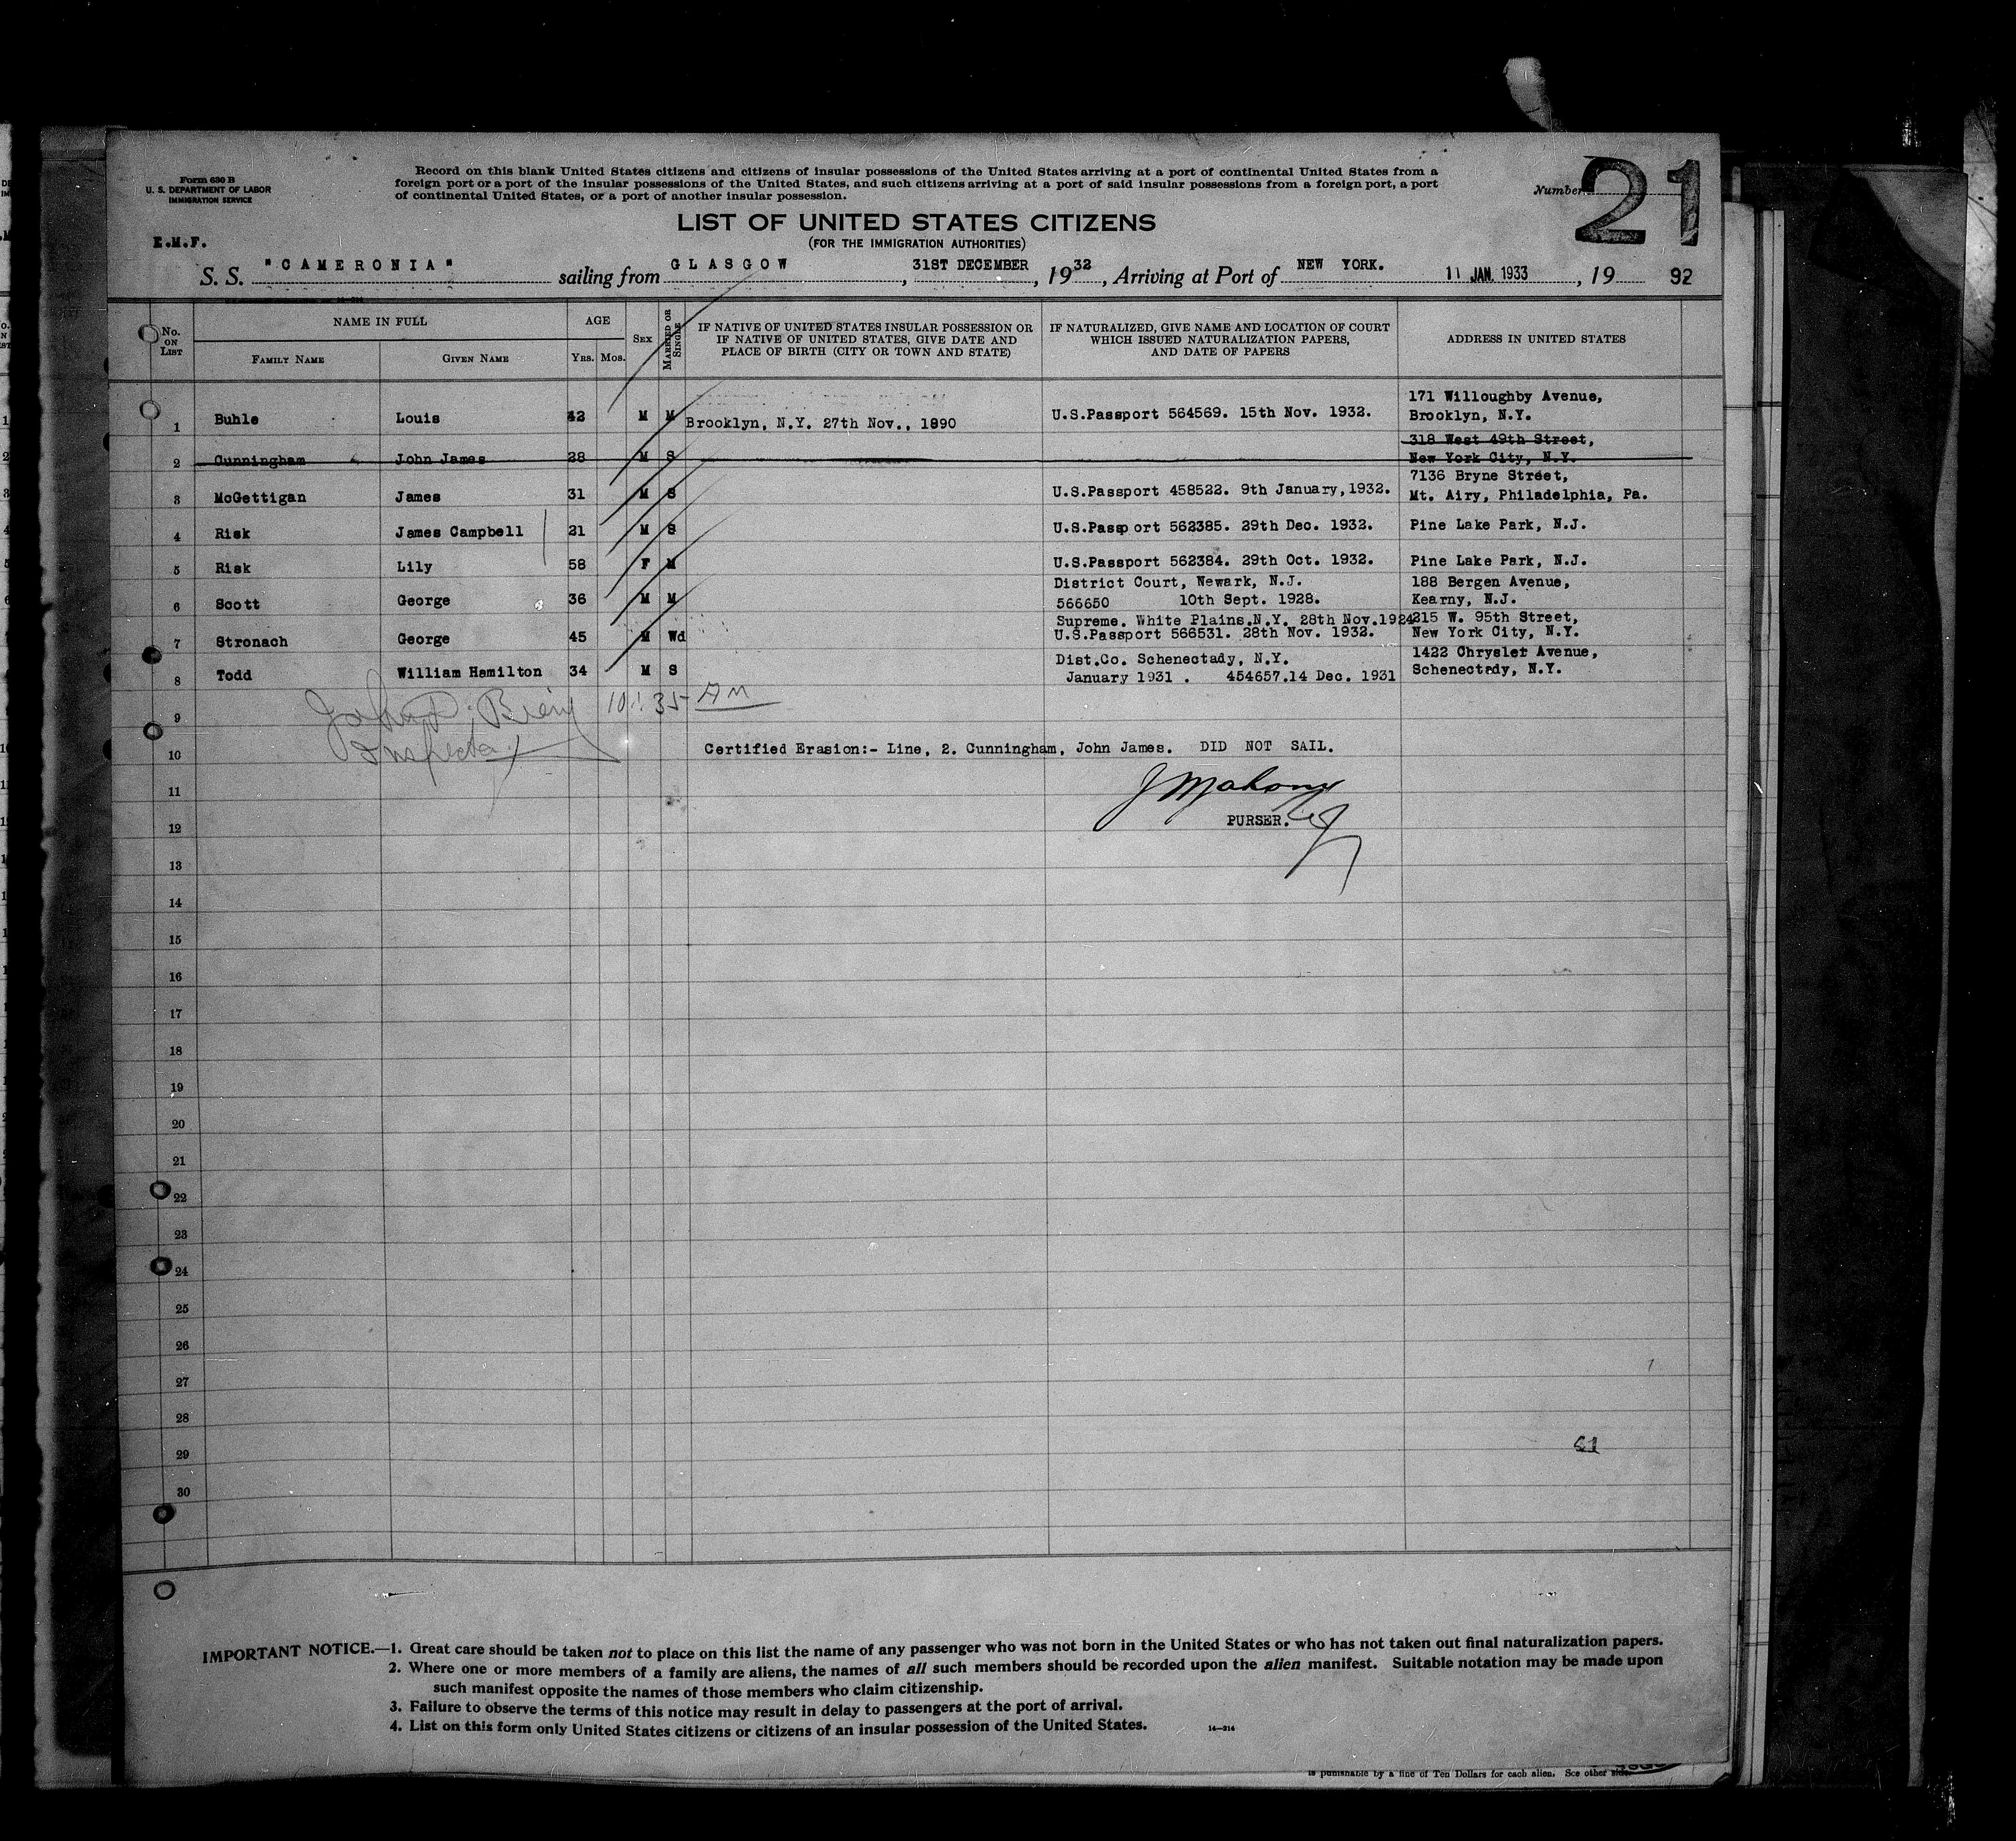 Form 630 B
U. S. DEPARTMENT OF LABOR
IMMIGRATION SERVICE
Record on this blank United States citizens and citizens of insular possessions of the United States arriving at a port of continental United States from a
foreign port or a port of the insular possessions of the United States, and such citizens arriving at a port of said insular possessions from a foreign port, a port
of continental United States, or a port of another insular possession.
Number 21
LIST OF UNITED STATES CITIZENS
(FOR THE IMMIGRATION AUTHORITIES)
E.M.F.
S. S. "CAMERONIA" sailing from GLASGOW, 31ST DECEMBER, 1932, Arriving at Port of NEW YORK. 11 JAN. 1933, 19 92
No. ON LIST
NAME IN FULL
FAMILY NAME
GIVEN NAME
AGE
Yrs. Mos.
SEX
MARRIED OR SINGLE
IF NATIVE OF UNITED STATES INSULAR POSSESSION OR
IF NATIVE OF UNITED STATES, GIVE DATE AND
PLACE OF BIRTH (CITY OR TOWN AND STATE)
IF NATURALIZED, GIVE NAME AND LOCATION OF COURT
WHICH ISSUED NATURALIZATION PAPERS,
AND DATE OF PAPERS
ADDRESS IN UNITED STATES
1 Buhle Louis 42 M M Brooklyn, N.Y. 27th Nov., 1890 U.S.Passport 564569. 15th Nov. 1932. 171 Willoughby Avenue,
Brooklyn, N.Y.
2 Cunningham John James 28 M S 318 West 49th Street,
New York City, N.Y.
3 McGettigan James 31 M S U.S.Passport 458522. 9th January,1932. 7136 Bryne Street,
Mt. Airy, Philadelphia, Pa.
4 Risk James Campbell 21 M S U.S.Passport 562385. 29th Dec. 1932. Pine Lake Park, N.J.
5 Risk Lily 58 F M U.S.Passport 562384. 29th Oct. 1932. Pine Lake Park, N.J.
6 Scott George 36 M M District Court, Newark, N.J. 188 Bergen Avenue,
566650 10th Sept. 1928. Kearny, N.J.
7 Stronach George 45 M Wd Supreme. White Plains.N.Y. 28th Nov.1924 215 W. 95th Street,
U.S.Passport 566531. 28th Nov. 1932. New York City, N.Y.
8 Todd William Hamilton 34 M S Dist.Co. Schenectady, N.Y. 1422 Chrysler Avenue,
January 1931 . 454657.14 Dec. 1931 Schenectady, N.Y.
9
10:35 AM
Inspector
10
Certified Erasion:- Line, 2. Cunningham, John James. DID NOT SAIL.
11
J Mahony
12
PURSER.
13
14
15
16
17
18
19
20
21
22
23
24
25
26
27
28
29
30
IMPORTANT NOTICE.—1. Great care should be taken not to place on this list the name of any passenger who was not born in the United States or who has not taken out final naturalization papers.
2. Where one or more members of a family are aliens, the names of all such members should be recorded upon the alien manifest. Suitable notation may be made upon
such manifest opposite the names of those members who claim citizenship.
3. Failure to observe the terms of this notice may result in delay to passengers at the port of arrival.
4. List on this form only United States citizens or citizens of an insular possession of the United States.
14—314
is punishable by a fine of Ten Dollars for each alien. See other side.